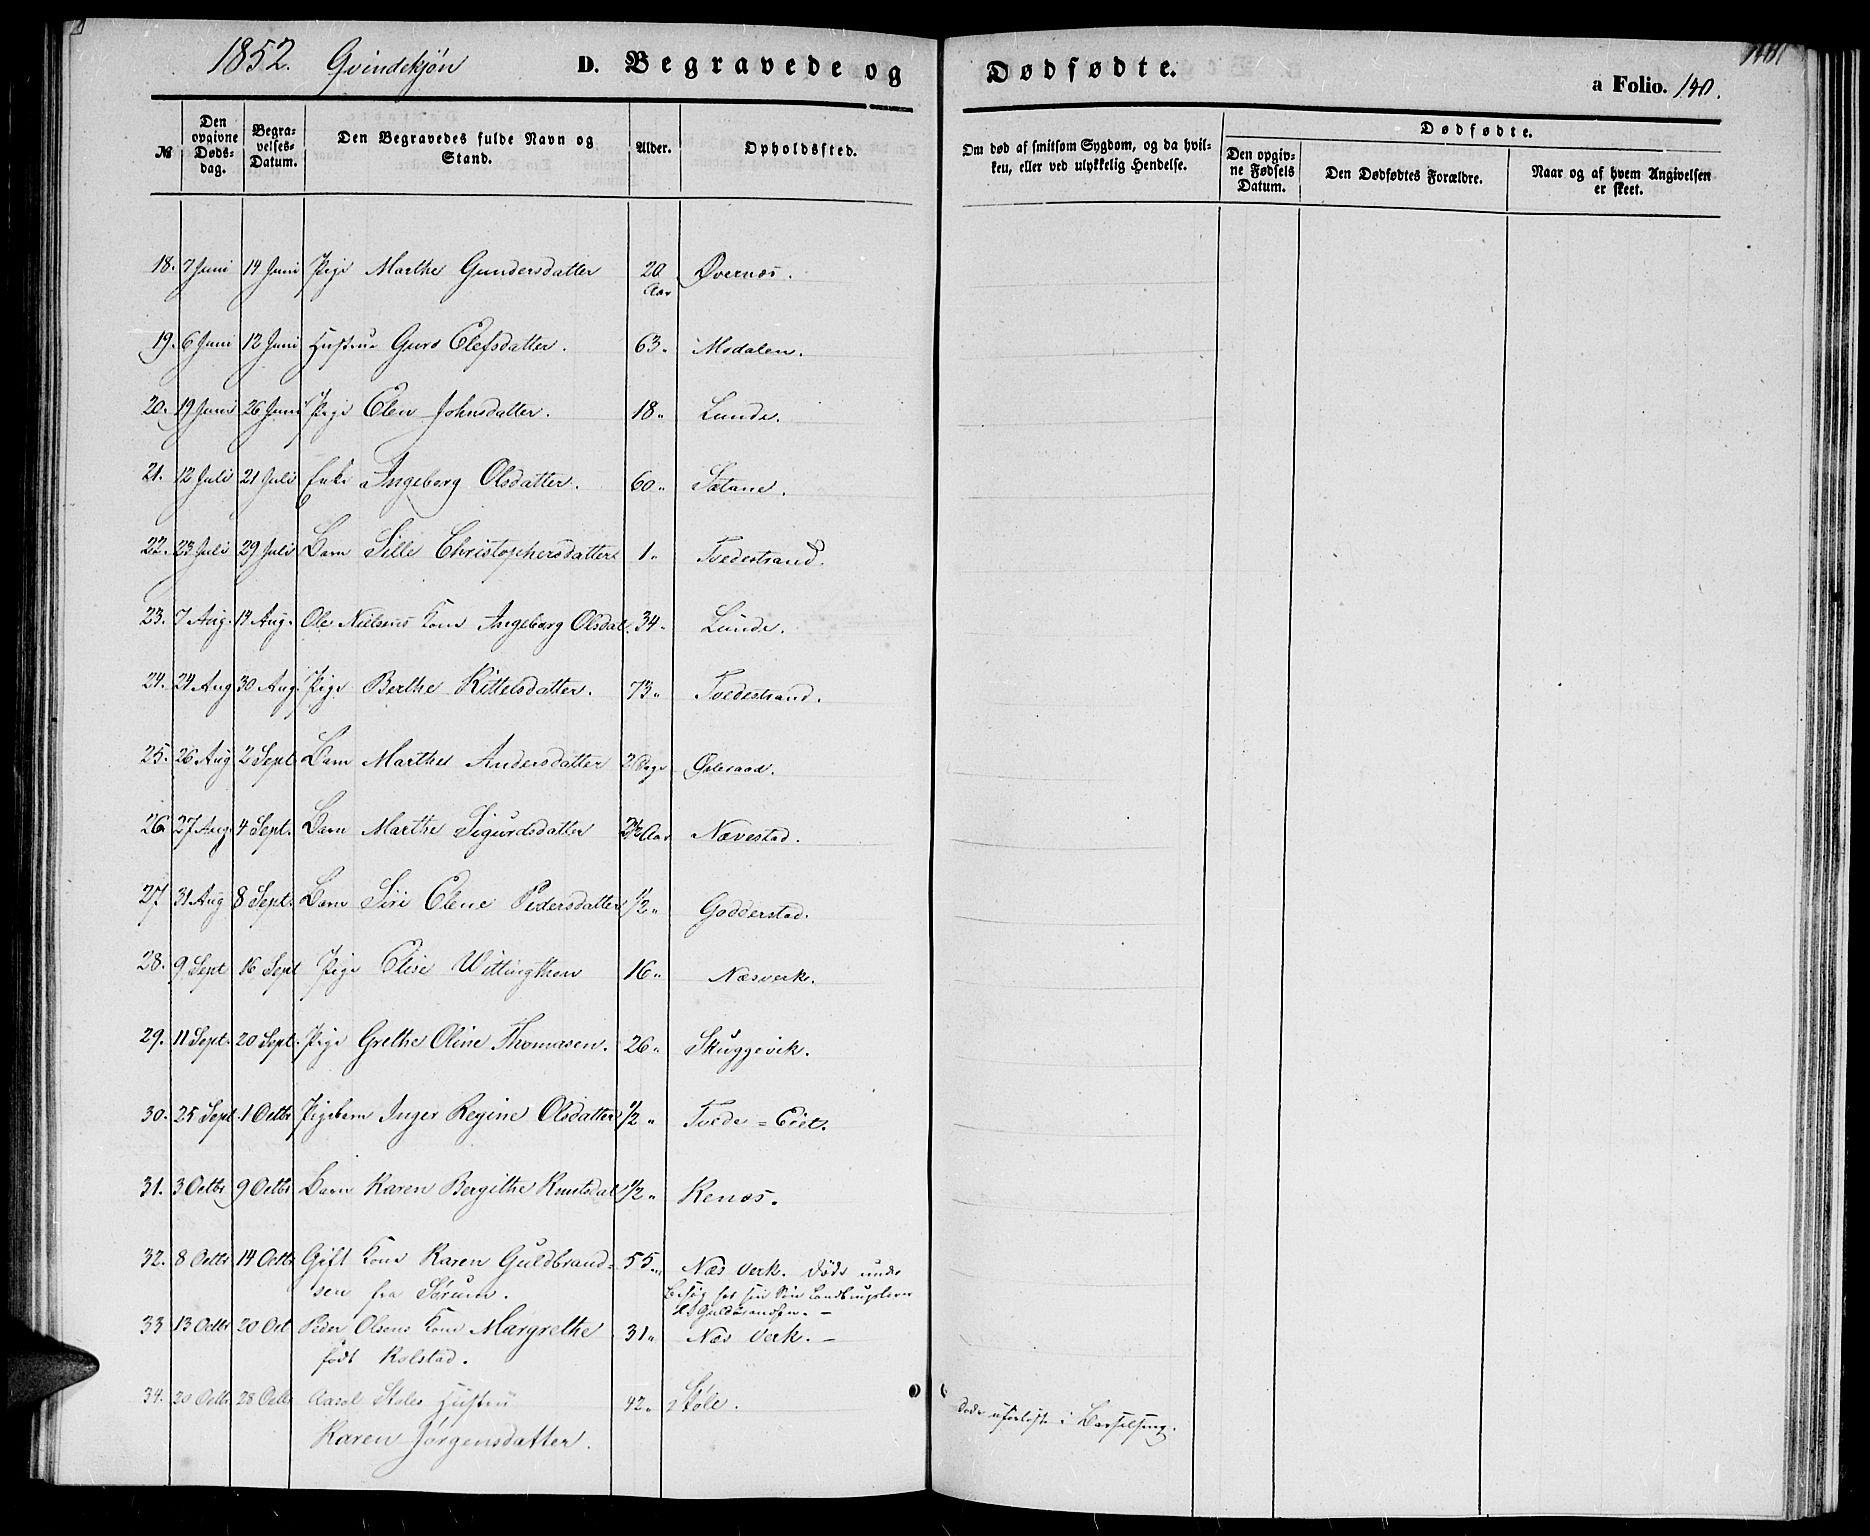 1852. Qvindekjøn D. Begravede og Dødfødte. a Folio. 140.
№ Den opgivne Døds-dag. Begra-velses-Datum. Den Begravedes fulde Navn og Stand. Alder. Opholdssted. Om død af smitsom Sygdom, og da hvil-ken, eller ved ulykkelig Hendelse. Dødfødte.
Den opgiv-ne Fødsels Datum. Den Dødfødtes Forældre. Naar og af hvem Angivelsen er skeet.
18. 7 Juni 14 Juni Pige Marthe Gundersdatter 20 Aar Øvernæs.
19. 6 Juni 12 Juni Hustrue Guro Olefsdatter. 63 " Modalen.
20. 19 Juni 26 Juni Pige Elen Johnsdatter. 18 " Lunde.
21. 12 Juli 21 Juli Enke Ingeborg Olsdatter. 60 " Satane.
22. 23 Juli 29 Juli Barn Sille Christophersdatter 1 " Tvedestrand.
23. 7 Aug. 14 Aug. Ole Nielsens Kone Ingeborg Olsdat. 34 " Lunde.
24. 24 Aug 30 Aug. Pige Berthe Kittelsdatter. 73 " Tvedestrand.
25. 26 Aug 2 Sept. Barn Marthe Andersdatter 2 Dage
26 27 Aug. 4 Sept. Barn Marthe Sigurdsdatter Aar Nævestad.
27 31 Aug 8 Sept. Barn Siri Elene Pedersdatter 1/2 " Godderstad.
28. 9 Sept 16 Sept Pige Elise Wittingthen 16 " Næsverk.
29. 11 Sept. 20 Sept. Pige Grethe Oline Thomasen. 26 " Skuggevik.
30. 25 Sept. 1 Octbr Pigebarn Inger Regine Olsdatter 1/2 " Tvede = Eiet.
31. 3 Octbr 9 Octbr Barn Karen Bergithe Knutsdat 1/2 " Renæs.
32. 8 Octbr 14 Octbr Gift Kone Karen Guldbrand= 55 " Næs Verk. Døde under
sen fra Sørum. Besøg hos sin Søn
Guldbrandsen. –
33 13 Octbr 20 Oct Peder Olsens Kone Margrethe 31 " Næs Verk. –
født Rolstad.
34. 20 Octbr 28 Octbr Aasol Støles Hustru 42 " Støle. Døde uforløst i Barselseng.
Karen Jørgensdatter.